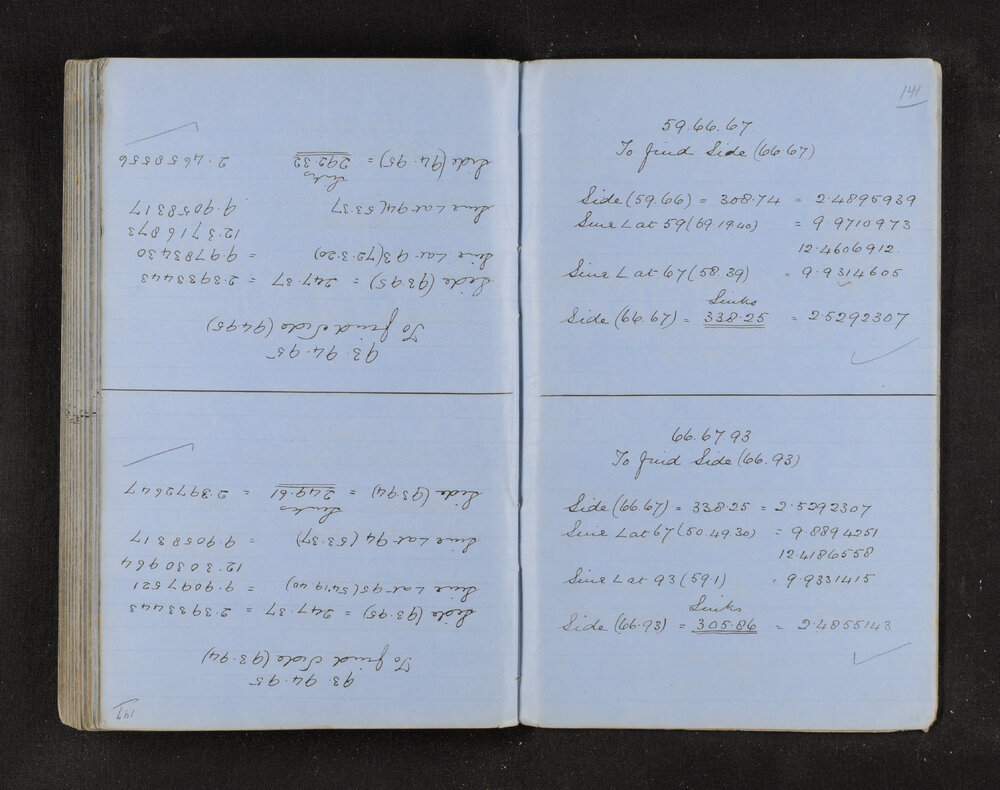 93.94.95
To find Side (93.94)
Side (93.95) = 247.37 = 2.3933443
Sine L at 95 (54.19.40) = 9.9097521
12.3030964
Sine L at 94 (53.37) = 9.9058317
Links
Side (93.94) = 249.61 = 2.3972647
93.94.95
To find Side (94.95)
Side (93.95) = 247.37 = 2.3933443
Sine L at 93 (72.3.20) = 9.9783430
12.3716873
Sine L at 94 (53.37) 9.9058317
Links
Side (94.95) = 292.32 2.4658556
141
59.66.67.
To find Side (66 67)
Side (59.66) = 308.74 = 2.4895939
Sine L at 59 (69.19.40) = 9.9710973
12.4606912
Sine L at 67 (58.39) = 9.9314605
Links
Side (66.67) = 338.25 = 2.5292307
66.67.93
To find Side (66.93)
Side (66.67) = 338.25 = 2.5292307
Sine L at 67 (50.49.30) = 9.8894251
12.4186558
Sine L at 93 (59.1) = 9.9331415
Links
Side (66.93) = 305.86 = 2.4855143